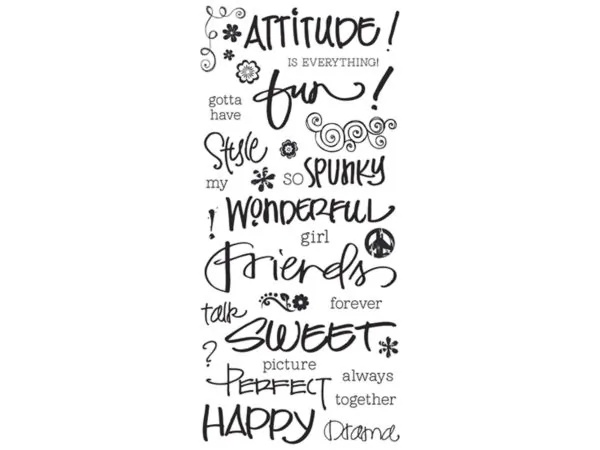 ATTITUDE!
IS EVERYTHING!
fun!
gotta
have
Style
my
so SPUNKY
! WONDERFUL
girl
Friends
forever
talk
SWEET
?
picture
PERFECT
always
together
HAPPY
Drama